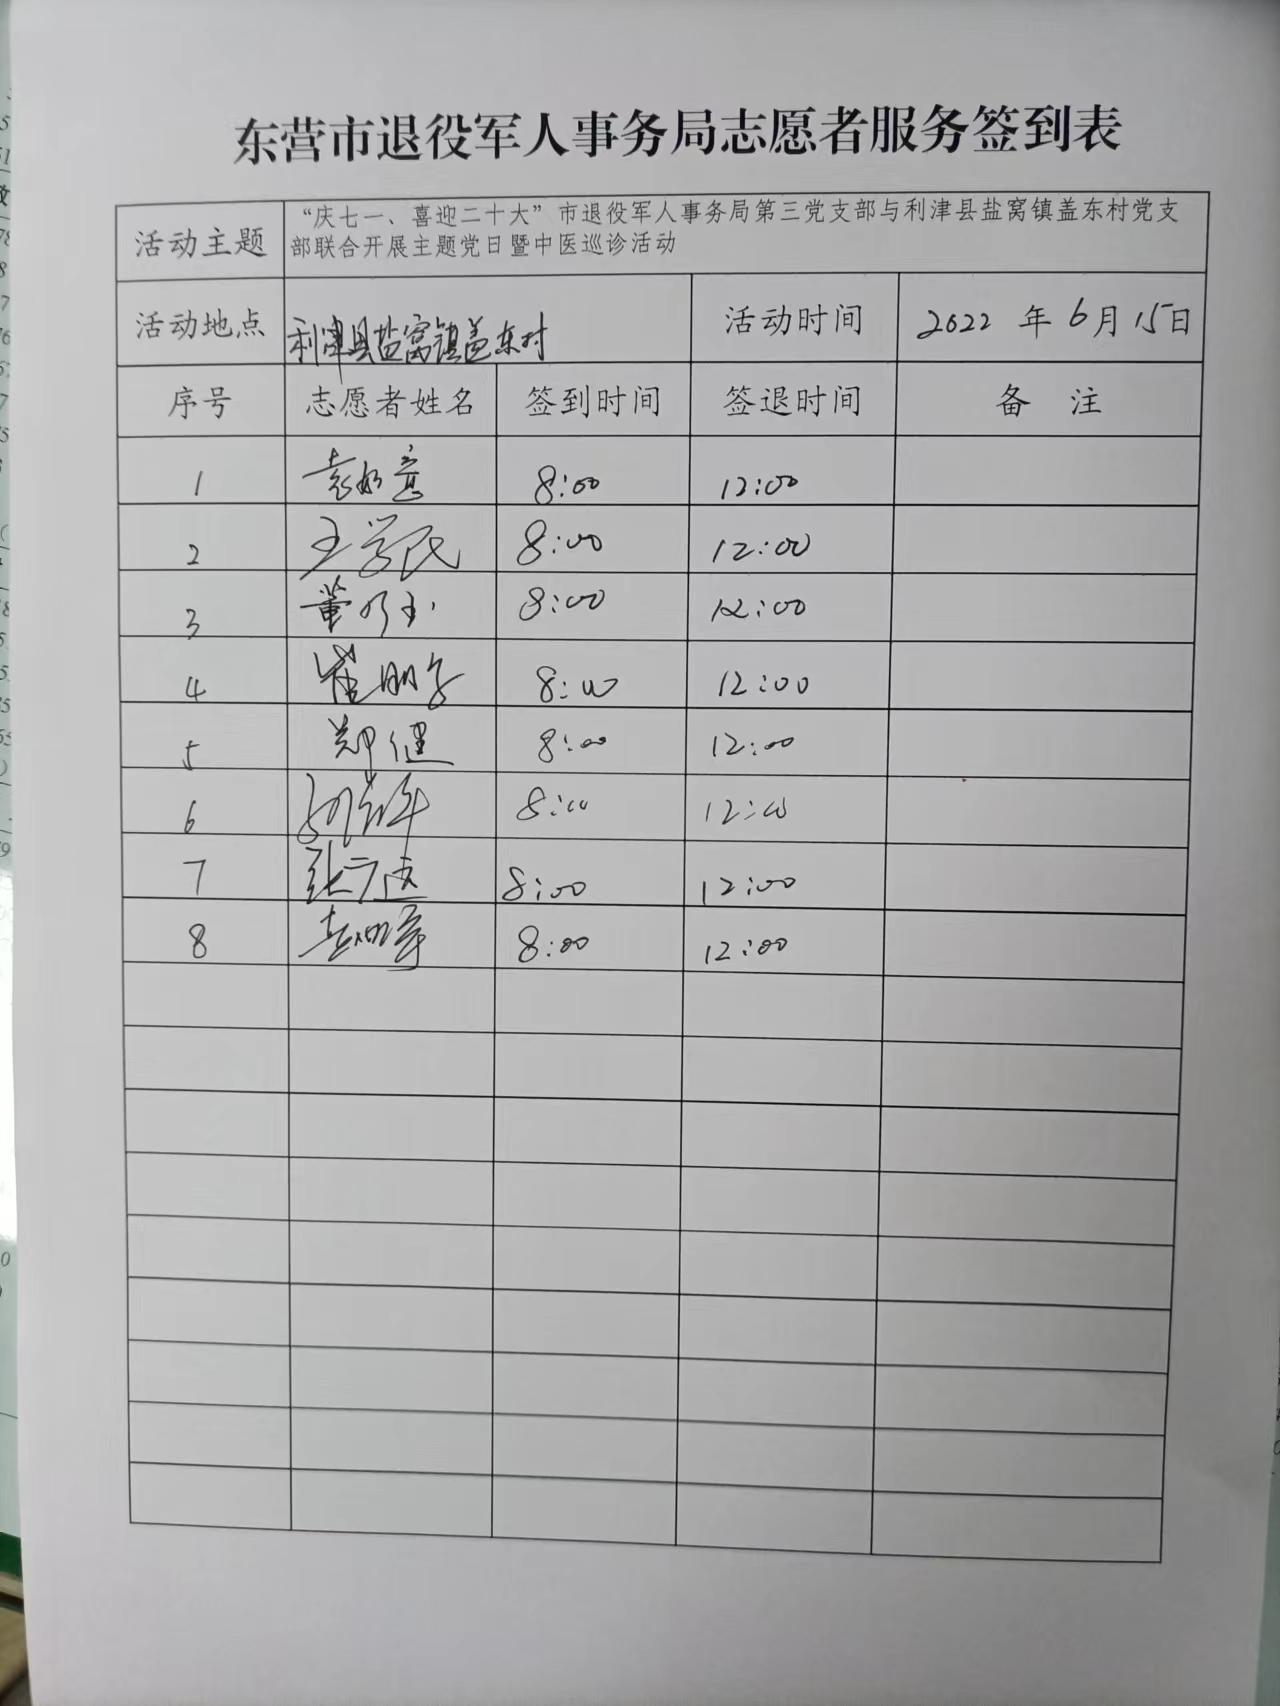 东营市退役军人事务局志愿者服务签到表
活动主题
“庆七一、喜迎二十大”市退役军人事务局第三党支部与利津县盐窝镇盖东村党支
部联合开展主题党日暨中医巡诊活动
活动地点 利津县盐窝镇盖东村 活动时间 2022 年 6月 15日
序号 志愿者姓名 签到时间 签退时间 备 注
1 8:00 12:00
2 王学民 8:00 12:00
3 董乃玉 8:00 12:00
4 崔明 8:00 12:00
5 郑健 8:00 12:00
6 8:00 12:00
7 张 8:00 12:00
8 8:00 12:00